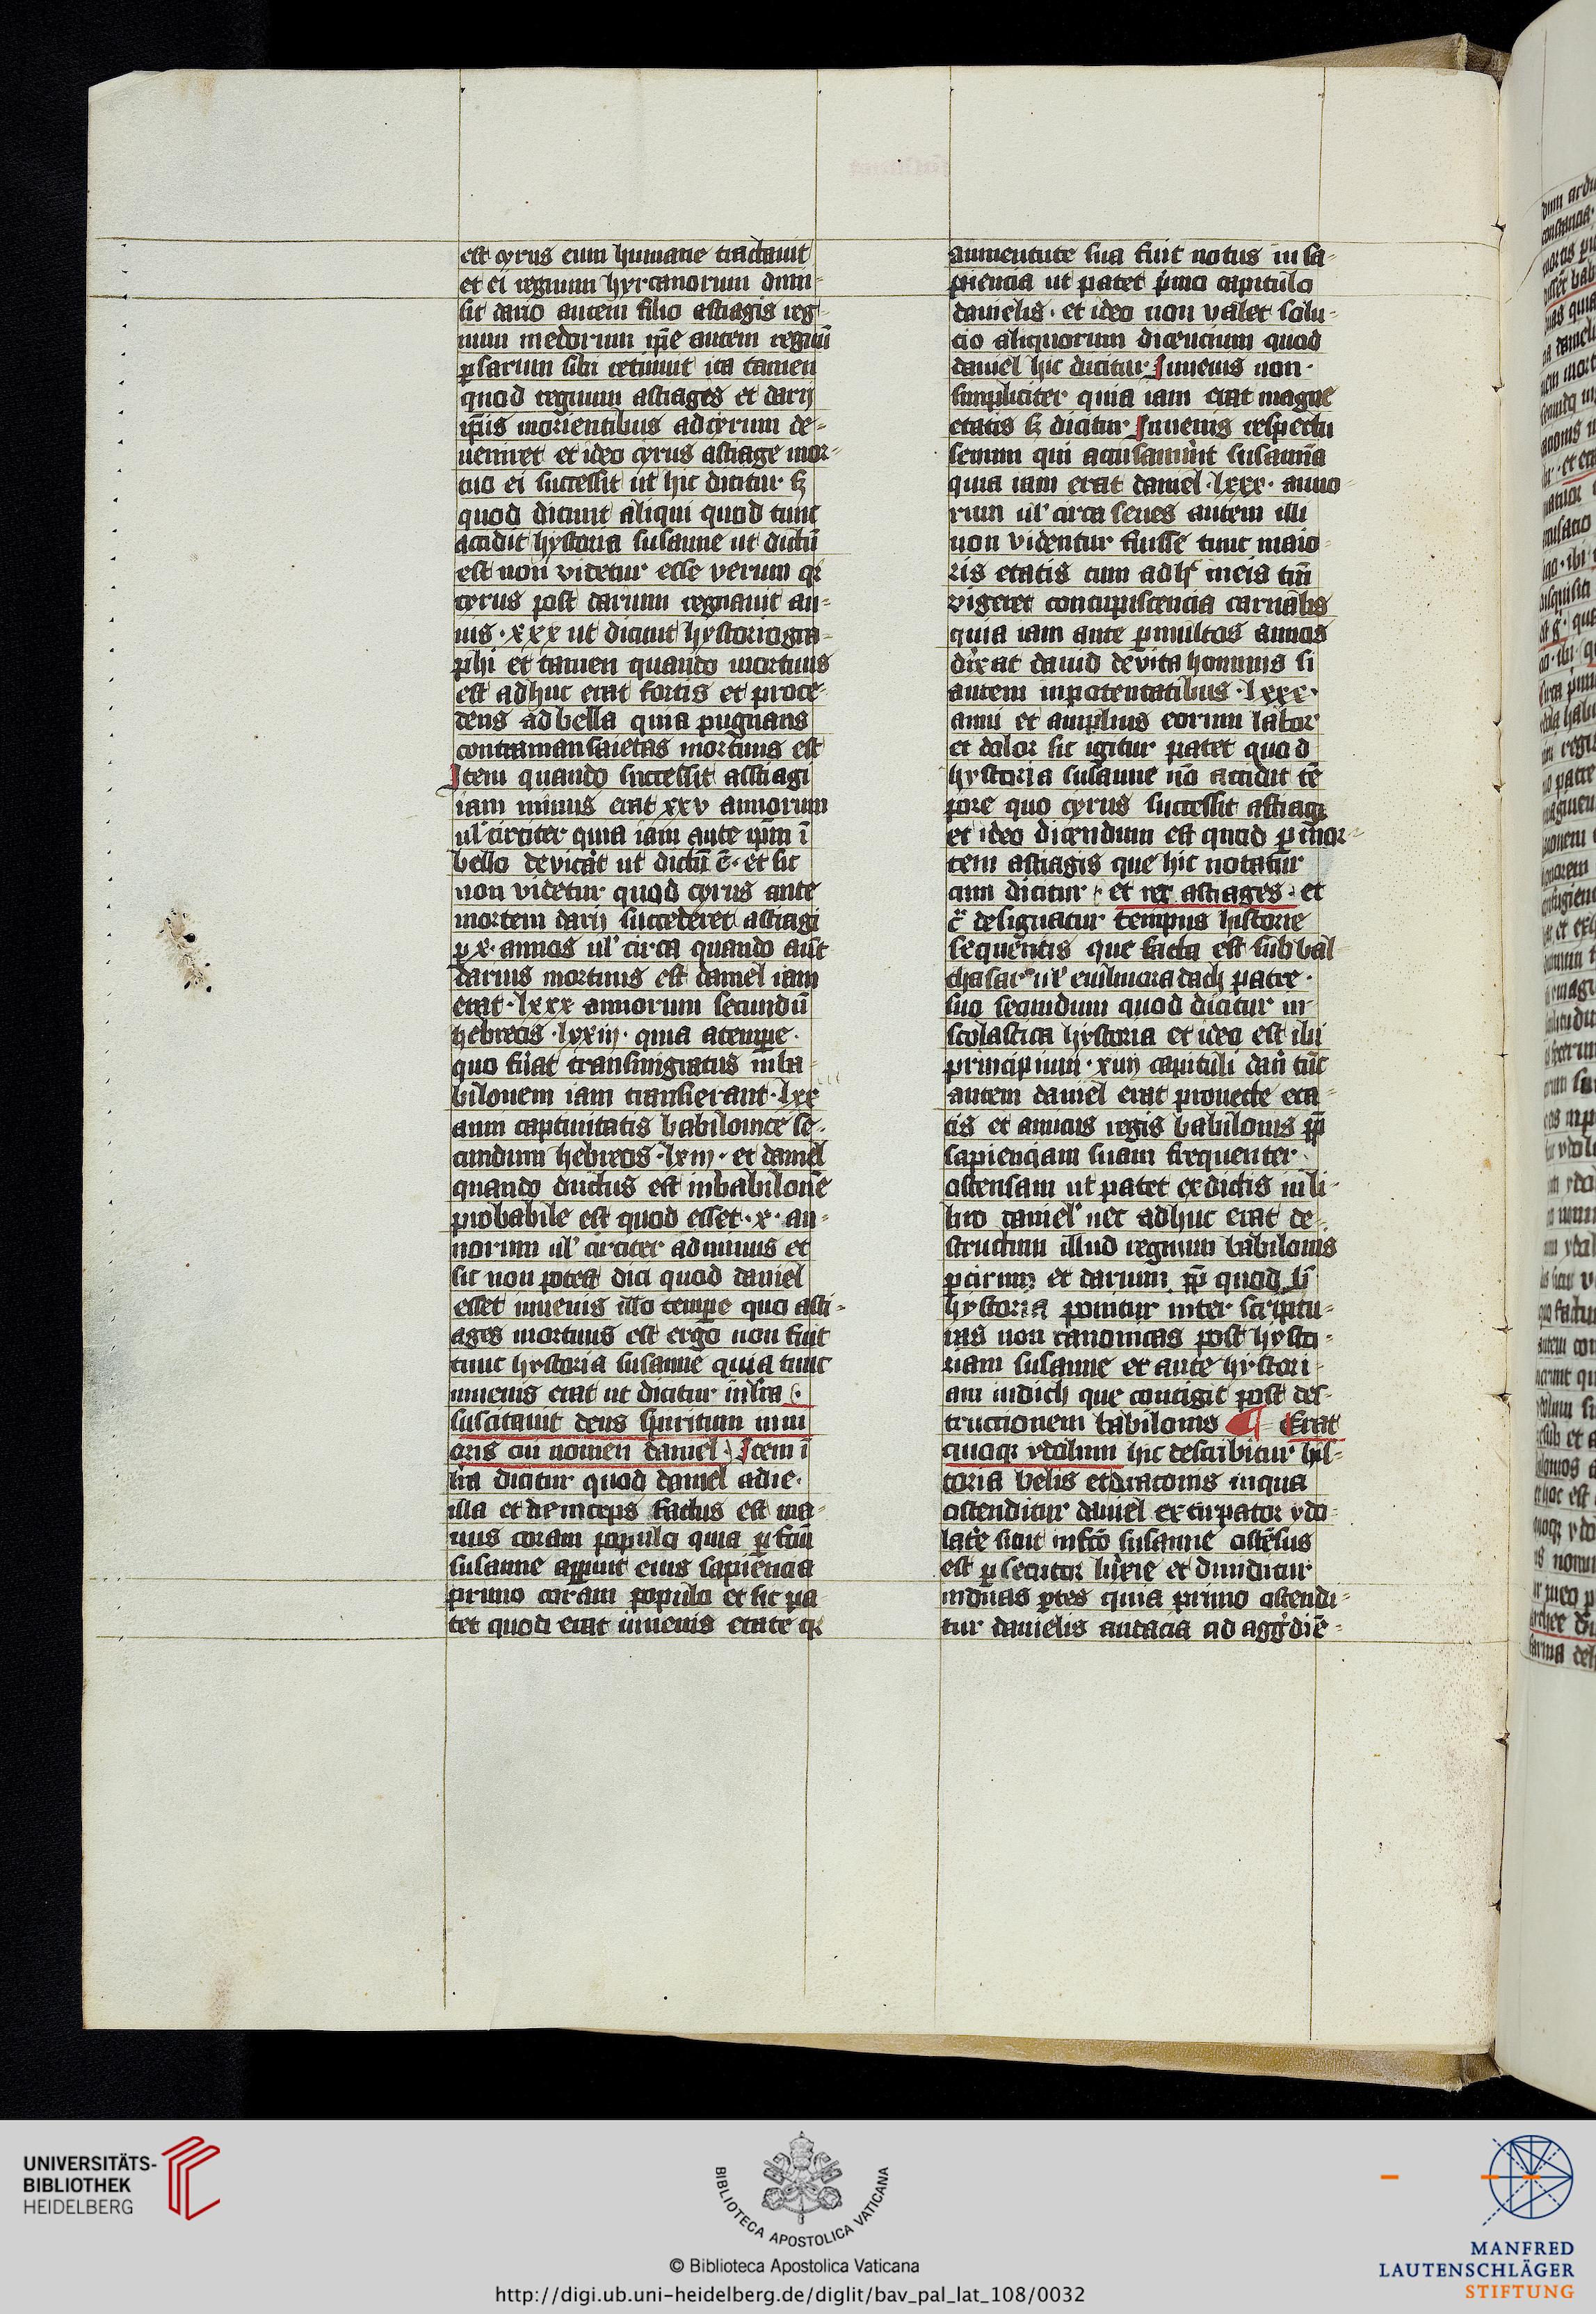 est cyrus eum humane tractauit
et ei regnum hyrcanorum dimi-
sit dario autem filio astiagis reg-
num medorum ip̅e autem regnū
ꝑsarum sibi retinuit ita tamen
quod regnum astiages et darij
ip̅is morientibus ad cyrum de-
ueniret et ideo cyrus astiage mor-
tuo ei successit ut hic dicitur sꝫ
quod dicunt aliqui quod tunc
accidit hystoria susanne ut dictū
est non videtur esse verum qꝛ
cyrus post darium regnauit an-
nis · xxx ut dicunt hystoriogra-
phi et tamen quando mortuus
est adhuc erat fortis et proce-
dens ad bella quia pugnans
contra mansaietas mortuus est
Item quando successit astiagi
iam minus erat xxv annorum
ul' circiter quia iam ante ip̅m ī
bello deuicāt ut dictū ē · et sic
non videtur quod cyrus ante
mortem darij succederet astiagi
ꝑ x · annos ul' circa quando aut̅
darius mortuus est daniel iam
erat · lxxx annorum secundū
hebreos · lxxiij · quia a tempe̅ ·
quo fu̅at transmigratus in ba-
bilonem iam transierant · lxx
anni captiuitatis babilonice se-
cundum hebreos · lxiij · et daniel
quando ductus est in babilone
probabile est quod esset · x · an-
norum ul' circiter ad minus et
sic non potest dici quod daniel
esset iuuenis illo tempe̅ quo asti-
ages mortuus est ergo non fuit
tunc hystoria susanne quia tunc
iuuenis erat ut dicitur infra ·
suscitauit deus spiritum iuni
oris cui nomen daniel · Item ī
fra dicitur quod daniel a die ·
illa et deinceps factus est ma-
nus coram populo quia ꝑ fcm̅
susanne apparuit eius sapiencia
primo coram populo et sic pa-
tet quod erat iuuenis etate qꝛ
a iuuentute sua fuit notus in sa-
piencia ut patet pͥmo capitulo
danielis · et ideo non valet solu-
cio aliquorum dicencium quod
daniel hic dicitur Iuuenis non ·
simpliciter quia iam erat magne
etatis sꝫ dicitur Iuuenis respectu
senum qui acusauerūt susannā
quia iam erat daniel · lxxx · anno
rum ul' circa senes autem illi
non videntur fuisse tunc maio-
ris etatis cum adhͨ in eis tm̅
vigeret concupiscencia carnalis
quia iam ante ꝑ multos annos
dixͣat dauid de vita hominis si
autem in potentatibus · lxxx ·
anni et amplius eorum labor
et dolor sic igitur patet quod
hystoria susanne nō accidit tē
pore quo cyrus successit astiagi
et ideo dicendum est quod ꝑ mor-
tem astiagis que hic notatur
cum dicitur · et rex astiages · et
cͣ designatur tempus historie
sequentis que facta est sub bal-
thasar ul' euilmoradach patre ·
suo secundum quod dicitur in
scolastica hystoria et ideo est ibi
principium · xiiij capituli dan̅ tūc
autem daniel erat prouecte eta-
tis et amicus regis babilonis ꝓp̅
sapienciam suam frequenter ·
ostensam ut patet ex dictis in li-
bro daniel' nec adhuc erat de-
structum illud regnum babilonis
ꝑ cirum et darium ꝓp̅ quod hͨ
hystoria ponitur inter scriptu-
ras non canonicas post hysto-
riam susanne et ante hystori-
am iudich que contigit post des-
tructionem babilonis ¶ Erat
quoqꝫ ydolum hic describitur his-
toria belis et draconis in qua
ostenditur daniel extirpator ydo-
latͥe sicut in fcō susanne ostēsus
est ꝑsecutor luxͥie et diuiditur
in duas ꝑtes quia primo ostendi-
tur danielis audacia ad aggͥdiē-
UNIVERSITÄTS-
BIBLIOTHEK
HEIDELBERG
BIBLIOTECA APOSTOLICA VATICANA
© Biblioteca Apostolica Vaticana
http://digi.ub.uni-heidelberg.de/diglit/bav_pal_lat_108/0032
MANFRED
LAUTENSCHLÄGER
STIFTUNG